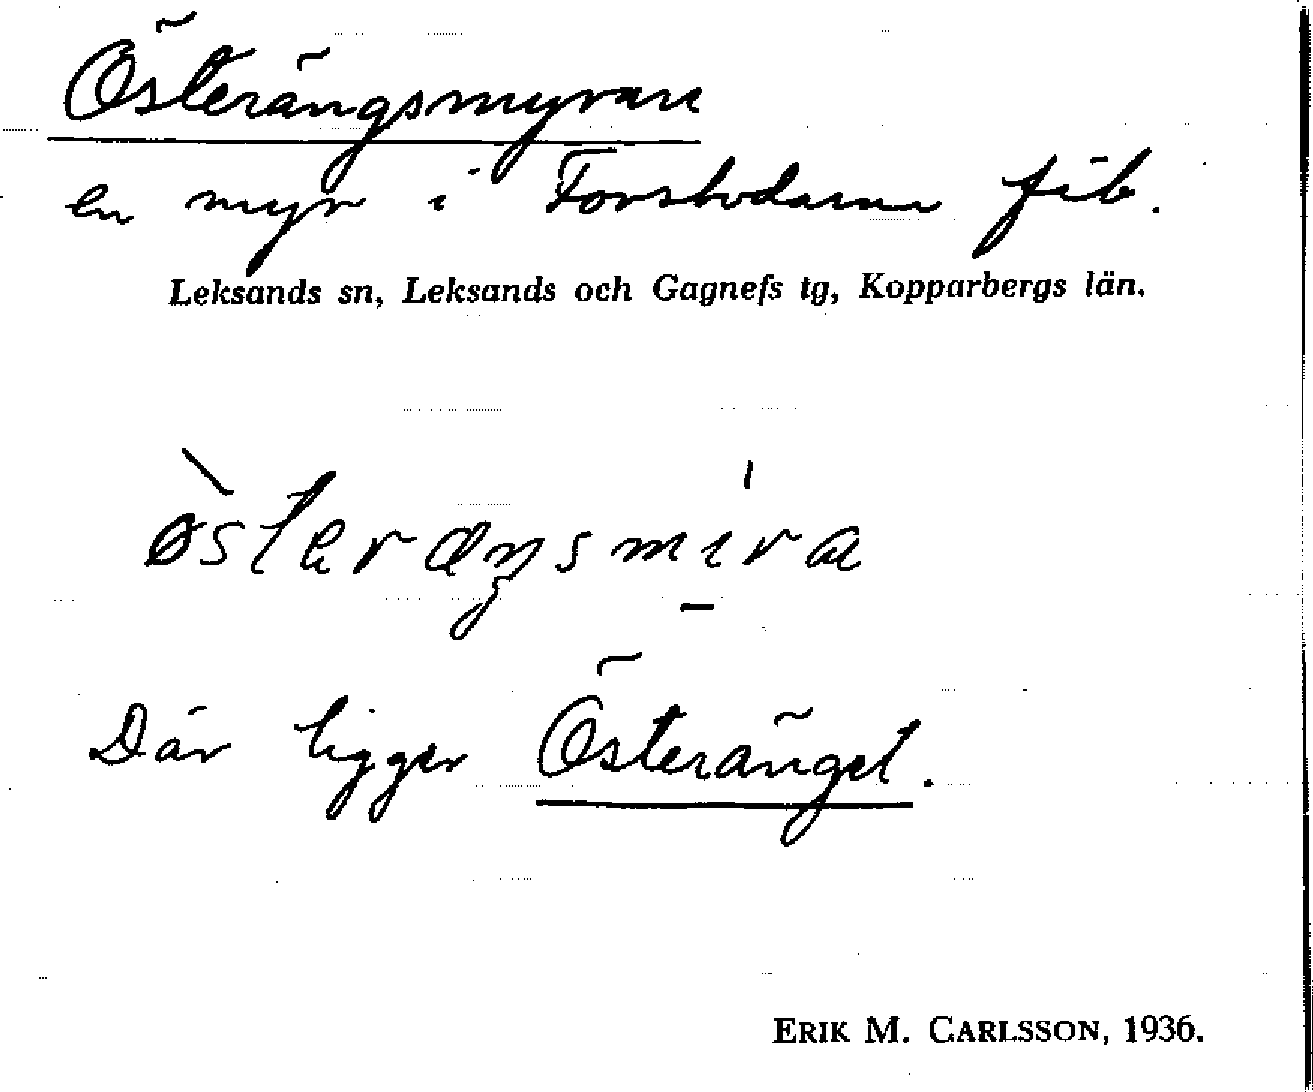 Österängsmyran
en myr i Forsbodarna fäb.
Leksands sn, Leksands och Gagnefs tg, Kopparbergs län.
østeræŋsmira
Där ligger Österänget.
ERIK M. CARLSSON, 1936.